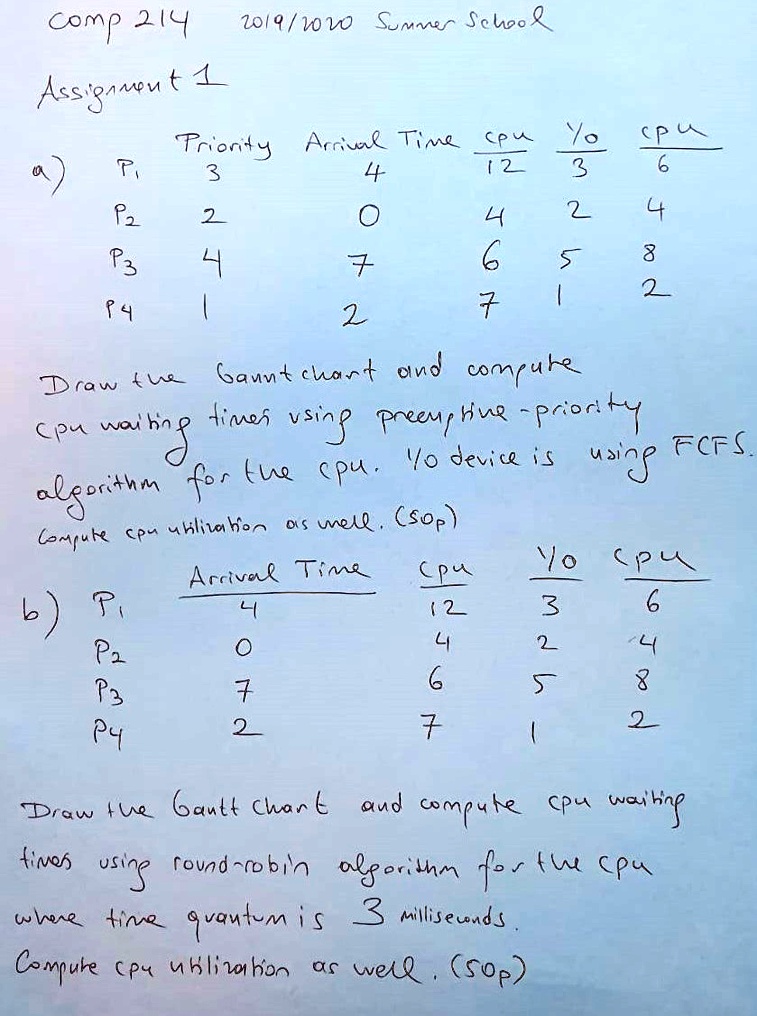 Comp 214 2019/2020 Summer School
Assignment 1
Priority Arrival Time CPU I/O CPU
a) P1 3 4 12 3 6
P2 2 0 4 2 4
P3 4 7 6 5 8
P4 1 2 7 1 2
Draw the Gannt chart and compute
cpu waiting times using preemptive-priority
algorithm for the cpu. I/O device is using FCFS.
Compute cpu utilization as well. (50p)
Arrival Time CPU I/O CPU
b) P1 4 12 3 6
P2 0 4 2 4
P3 7 6 5 8
P4 2 7 1 2
Draw the Gantt chart and compute cpu waiting
times using round-robin algorithm for the cpu
where time quantum is 3 milliseconds.
Compute cpu utilization as well. (50p)